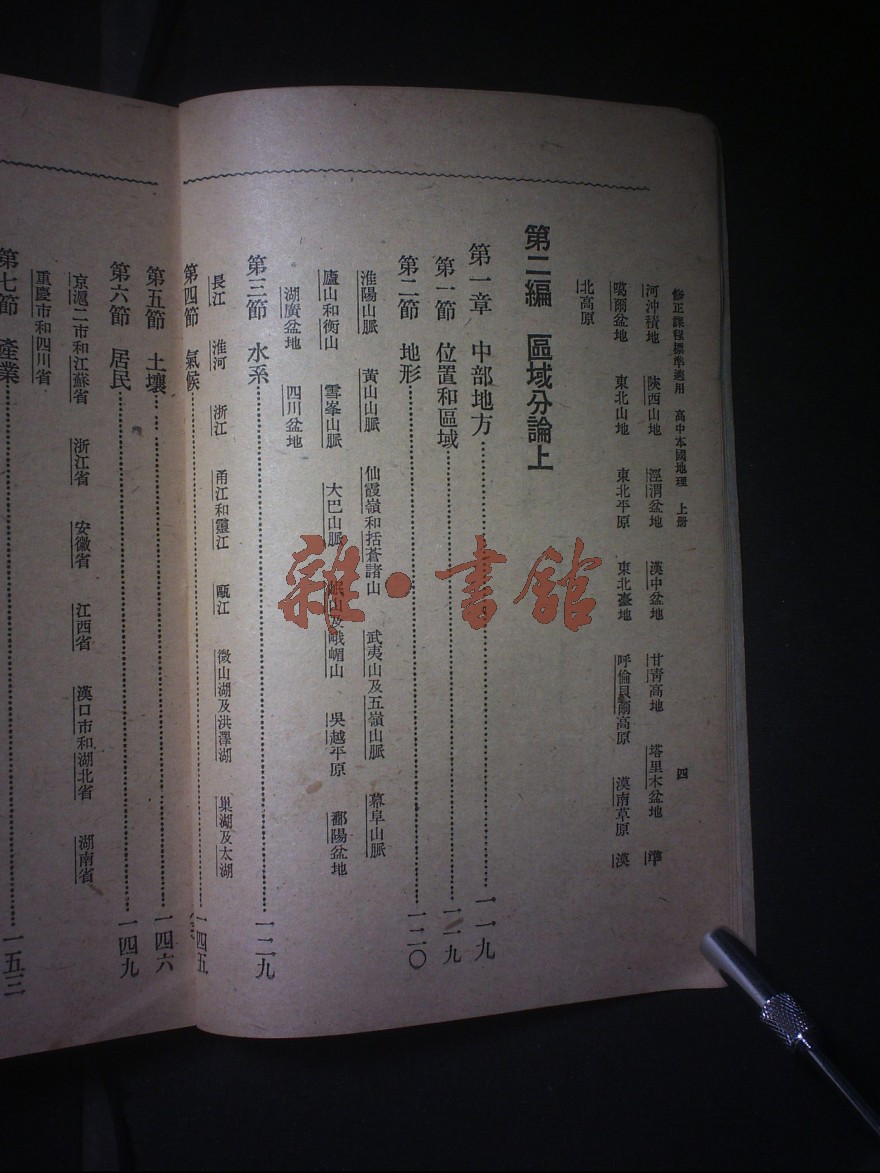 修正課程標準適用 高中本國地理 上册 四
河沖積地 陝西山地 涇渭盆地 漢中盆地 甘青高地 塔里木盆地 準
噶爾盆地 東北山地 東北平原 東北臺地 呼倫貝爾高原 漠南草原 漠
北高原
第二編 區域分論上
第一章 中部地方 一一九
第一節 位置和區域 一一九
第二節 地形 一二〇
淮陽山脈 黃山山脈 仙霞嶺和括蒼諸山 武夷山及五嶺山脈 幕阜山脈
廬山和衡山 雪峯山脈 大巴山脈 岷山及峨嵋山 吳越平原 鄱陽盆地
湖廣盆地 四川盆地
第三節 水系 一二九
長江 淮河 浙江 甬江和靈江 甌江 微山湖及洪澤湖 巢湖及太湖
第四節 氣候 一四五
第五節 土壤 一四六
第六節 居民 一四九
京滬二市和江蘇省 浙江省 安徽省 江西省 漢口市和湖北省 湖南省
重慶市和四川省
第七節 產業 一五三
雜·書館